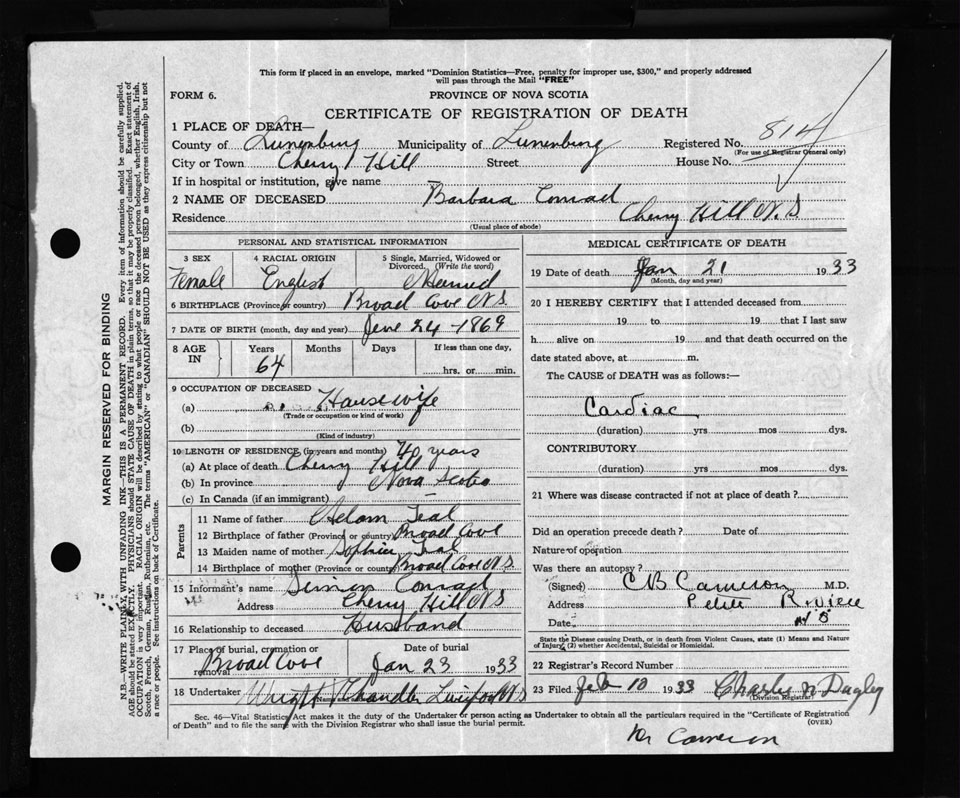 This form if placed in an envelope, marked "Dominion Statistics—Free, penalty for improper use, $300," and properly addressed
will pass through the Mail "FREE"
FORM 6.
PROVINCE OF NOVA SCOTIA
CERTIFICATE OF REGISTRATION OF DEATH
1 PLACE OF DEATH—
County of Lunenburg Municipality of Lunenburg Registered No. 814
(For use of Registrar General only)
City or Town Cherry Hill Street House No.
If in hospital or institution, give name
2 NAME OF DECEASED Barbara Conrad
Residence Cherry Hill N.S
(Usual place of abode)
PERSONAL AND STATISTICAL INFORMATION
3 SEX 4 RACIAL ORIGIN 5 Single, Married, Widowed or Divorced. (Write the word)
Female English Married
6 BIRTHPLACE (Province or country) Broad Cove N.S.
7 DATE OF BIRTH (month, day and year) June 24 - 1869
8 AGE IN Years Months Days If less than one day,
64 hrs. or min.
9 OCCUPATION OF DECEASED
(a) Housewife
(Trade or occupation or kind of work)
(b)
(Kind of industry)
10 LENGTH OF RESIDENCE (in years and months) 40 years
(a) At place of death Cherry Hill
(b) In province Nova Scotia
(c) In Canada (if an immigrant) —
Parents
11 Name of father Adam Teal
12 Birthplace of father (Province or country) Broad Cove
13 Maiden name of mother Sophia Teal
14 Birthplace of mother (Province or country) Broad Cove N.S.
15 Informant's name Simion Conrad
Address Cherry Hill N S
16 Relationship to deceased Husband
17 Place of burial, cremation or removal Date of burial
Broad Cove Jan 23 1933
18 Undertaker Wright N.S
MEDICAL CERTIFICATE OF DEATH
19 Date of death Jan 21 1933
(Month, day and year)
20 I HEREBY CERTIFY that I attended deceased from
19 to 19 that I last saw
h alive on 19 and that death occurred on the
date stated above, at m.
The CAUSE of DEATH was as follows:—
Cardiac
(duration) yrs mos dys.
CONTRIBUTORY
(duration) yrs mos dys.
21 Where was disease contracted if not at place of death?
Did an operation precede death? Date of
Nature of operation
Was there an autopsy?
(Signed) C B Cameron M.D.
Address Petite Riviere
Date N S
State the Disease causing Death, or in death from Violent Causes, state (1) Means and Nature of Injury, (2) whether Accidental, Suicidal or Homicidal.
22 Registrar's Record Number
23 Filed Feb 10 1933 Charles N Dagley
(Division Registrar)
Sec. 46—Vital Statistics Act makes it the duty of the Undertaker or person acting as Undertaker to obtain all the particulars required in the "Certificate of Registration
of Death" and to file the same with the Division Registrar who shall issue the burial permit. (OVER)
Dr Cameron
MARGIN RESERVED FOR BINDING
N.B.—WRITE PLAINLY, WITH UNFADING INK—THIS IS A PERMANENT RECORD. Every item of information should be carefully supplied.
AGE should be stated EXACTLY. PHYSICIANS should STATE CAUSE OF DEATH in plain terms, so that it may be properly classified. Exact statement of
OCCUPATION is very important. RACIAL ORIGIN will be described by stating to what people or race the deceased person belonged, whether English, Irish,
Scotch, French, German, Russian, Ruthenian, etc. The terms "AMERICAN" or "CANADIAN" SHOULD NOT BE USED as they express citizenship but not
a race or people. See instructions on back of Certificate.